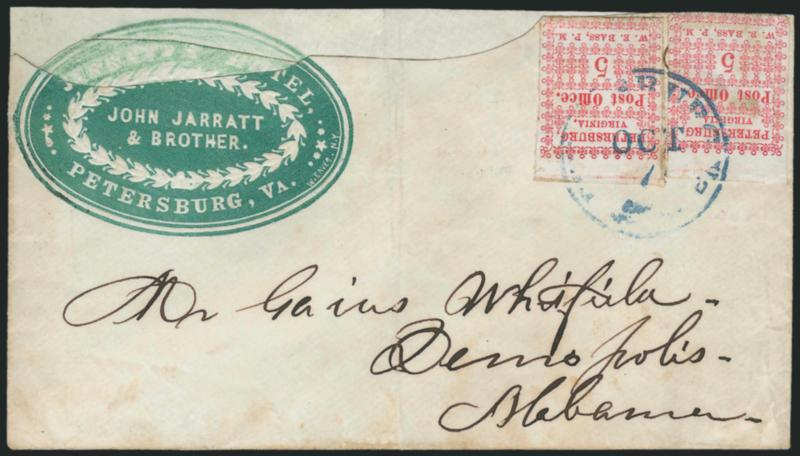 HOTEL,
JOHN JARRATT
& BROTHER.
PETERSBURG, VA.
W. E. BASS, P. M
5
Post Office.
VIRGINIA,
PETERSBURG
W. E. BASS, P. M
5
Post Office.
VIRGINIA,
PETERSBURG
OCT
Mr Gaius Whitfield
Demopolis
Alabama